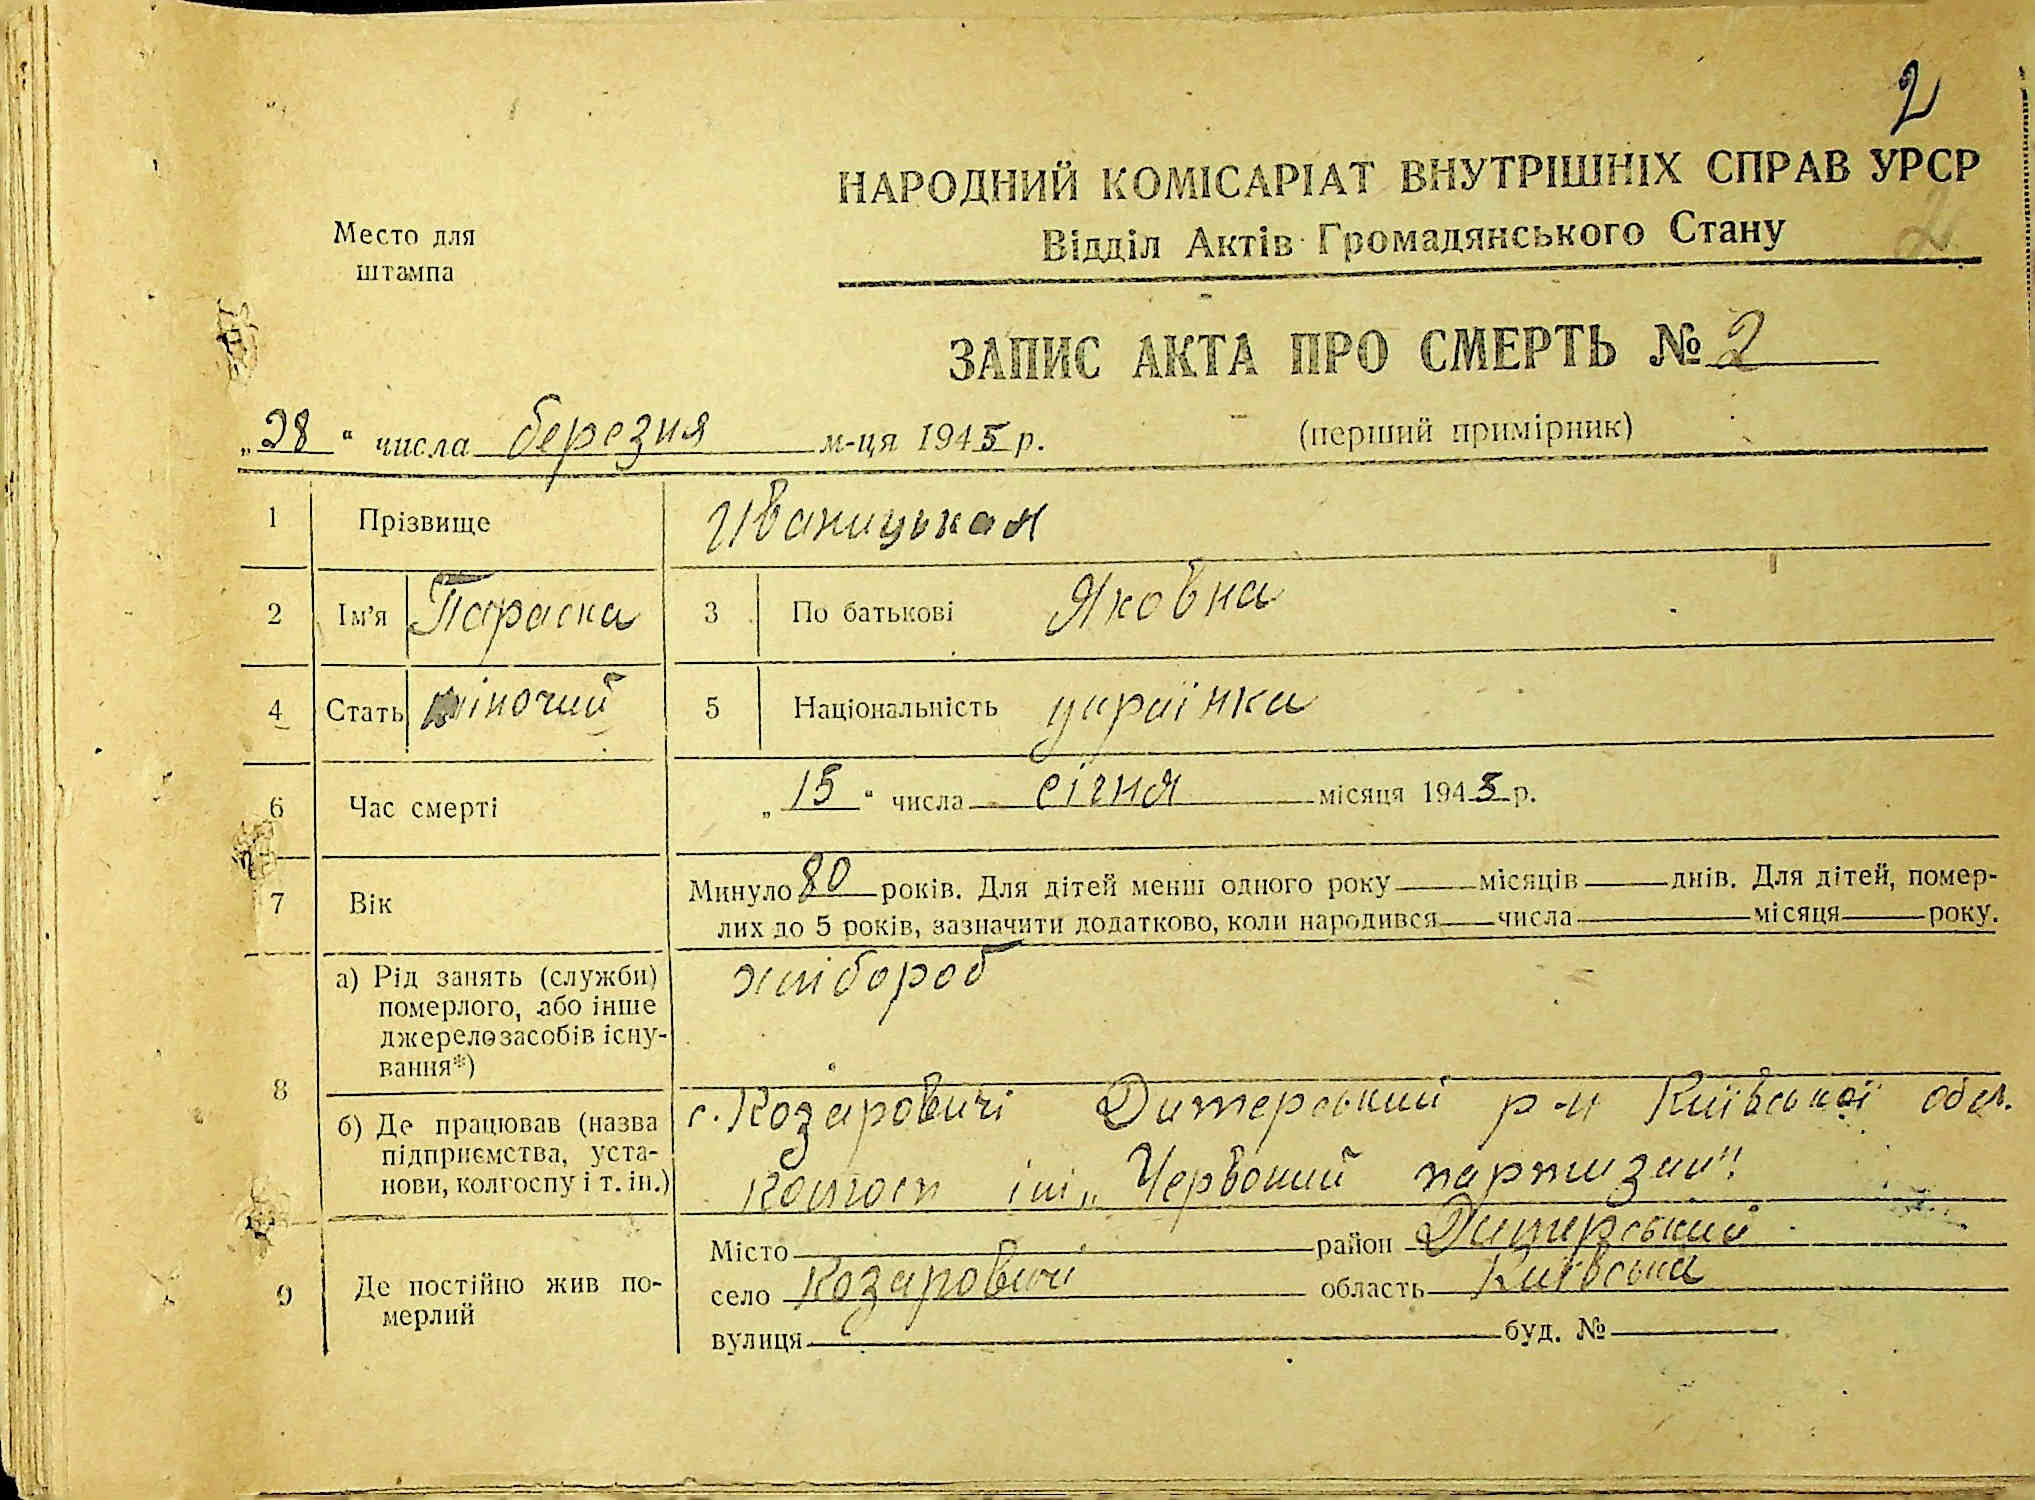 2
НАРОДНИЙ КОМІСАРІАТ ВНУТРІШНІХ СПРАВ УРСР
Место для штампа
Відділ Актів Громадянського Стану
2
ЗАПИС АКТА ПРО СМЕРТЬ № 2
„28“ числа березня м-ця 1945 р. (перший примірник)
1 Прізвище Иваницькая
2 Ім'я Параска 3 По батькові Яковна
4 Стать жіночий 5 Національність українка
6 Час смерті „15“ числа січня місяця 1945 р.
7 Вік Минуло 80 років. Для дітей менш одного року місяців днів. Для дітей, помер-
лих до 5 років, зазначити додатково, коли народився числа місяця року.
8 а) Рід занять (служби) хлібороб
померлого, або інше
джерело засобів існу-
вання*)
б) Де працював (назва с. Козаровичі Димерський р-н Київської обл.
підприємства, уста-
нови, колгоспу і т. ін.) колгосп ім „Червоний партизан".
9 Де постійно жив по-
мерлий
Місто район Димерський
село Козаровичі область Київська
вулиця буд. №